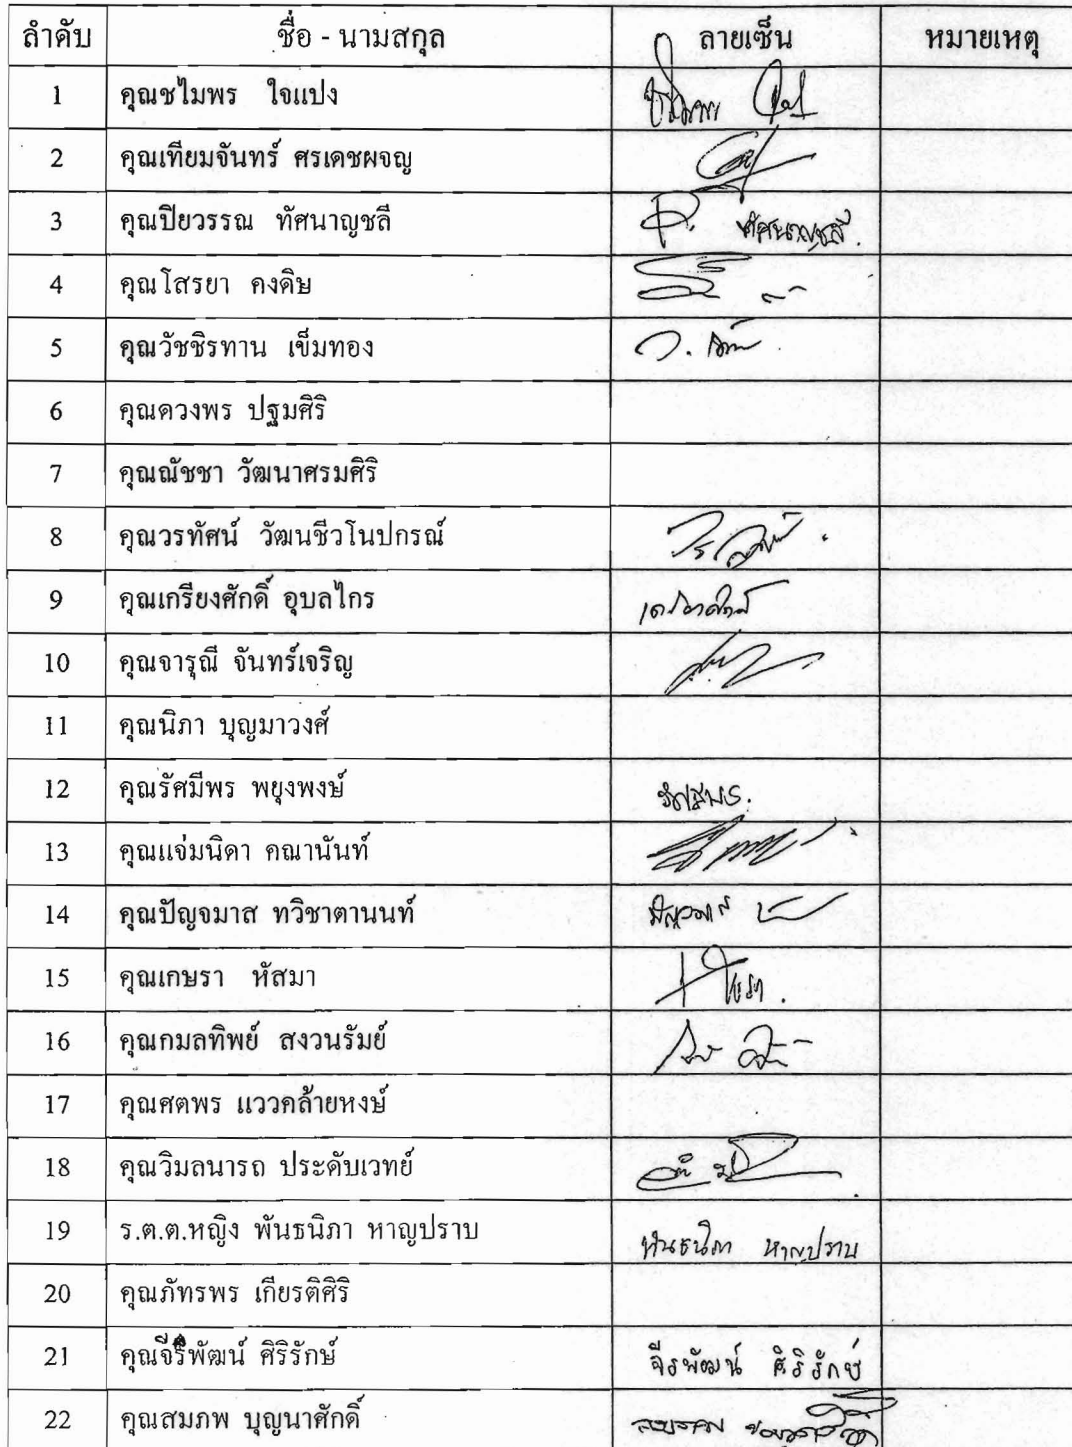 ลำดับ ชื่อ - นามสกุล ลายเซ็น หมายเหตุ
1 คุณชไมพร ใจแปง
2 คุณเทียมจันทร์ ศรเดชผจญ
3 คุณปิยวรรณ ทัศนาญชลี P. ทัศนาญชลี
4 คุณโสรยา คงดิษ
5 คุณวัชชิรทาน เข็มทอง
6 คุณดวงพร ปฐมศิริ
7 คุณณัชชา วัฒนาศรมศิริ
8 คุณวรทัศน์ วัฒนชีวโนปกรณ์
9 คุณเกรียงศักดิ์ อุบลไกร
10 คุณจารุณี จันทร์เจริญ
11 คุณนิภา บุญมาวงศ์
12 คุณรัศมีพร พยุงพงษ์
13 คุณแจ่มนิดา คณานันท์
14 คุณปัญจมาส ทวิชาตานนท์
15 คุณเกษรา หัสมา
16 คุณกมลทิพย์ สงวนรัมย์
17 คุณศตพร แววคล้ายหงษ์
18 คุณวิมลนารถ ประดับเวทย์
19 ร.ต.ต.หญิง พันธนิภา หาญปราบ พันธนิภา หาญปราบ
20 คุณภัทรพร เกียรติศิริ
21 คุณจีรพัฒน์ ศิริรักษ์ จีรพัฒน์ ศิริรักษ์
22 คุณสมภพ บุญนาศักดิ์